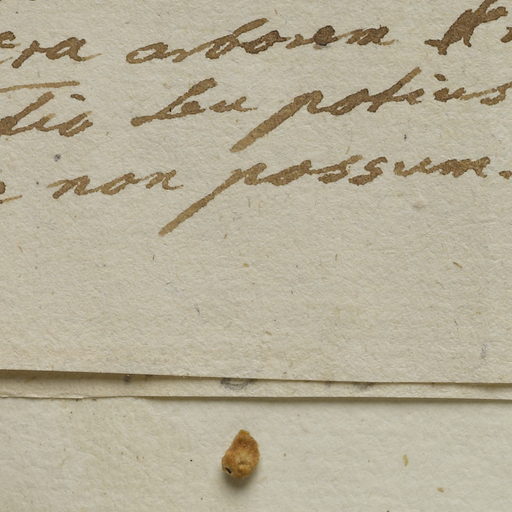 era arborem
dio seu potius
non possum.